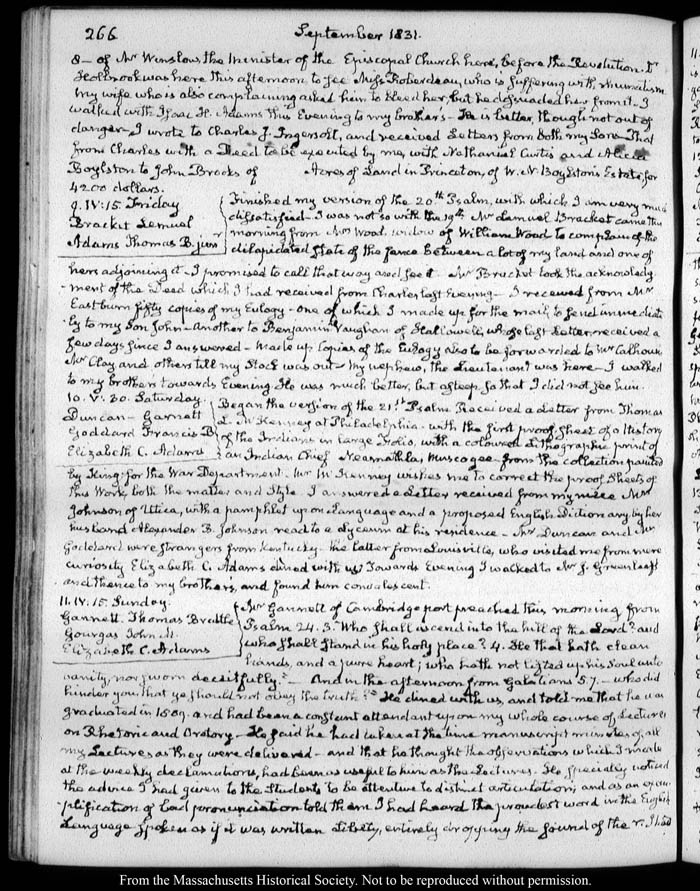 266 September 1831.
8 — of Mr Winslow, the Minister of the Episcopal Church here, before the Revolution. Dr
Holbrook was here this afternoon to see Miss Roberdeau, who is suffering with rheumatism
My wife who is also complaining asked him to bleed her, but he dissuaded her from it. I
walked with Isaac H. Adams this Evening to my brother's — He is better, though not out of
danger — I wrote to Charles J. Ingersoll, and received Letters from both my Sons — That
from Charles with a Deed to be executed by me, with Nathaniel Curtis and Alicia
Boylston to John Brooks of Acres of Land in Princeton, of W. N. Boylston's Estate, for
4200 dollars.
9. IV: 15. Friday
Bracket Lemuel
Adams Thomas B. junr
Finished my version of the 20th Psalm, with which I am very much
dissatisfied — I was not so with the 19th Mr Lemuel Bracket came this
morning from Mrs Wood, widow of William Wood to complain of the
dilapidated state of the fence between a lot of my land and one of
hers adjoining it — I promised to call that way and see it. Mr Bracket took the acknowledg-
ment of the Deed which I had received from Charles last Evening — I received from Mr
Eastburn fifty copies of my Eulogy — one of which I made up for the mail, to send immediate
ly to my Son John — another to Benjamin Vaughan of Hallowell, whose last Letter, received a
few days since I answered — Made up Copies of the Eulogy also to be forwarded to Mr Calhoun
Mr Clay and others till my Stock was out — My nephew, the Lieutenant was here — I walked
to my brother's towards Evening. He was much better, but asleep, so that I did not see him.
10. V: 30. Saturday.
Duncan — Garnett
Goddard Francis B
Elizabeth C. Adams
Began the version of the 21st Psalm. Received a Letter from Thomas
L. McKenney at Philadelphia — with the first proof sheet of a History
of the Indians in large Folio, with a coloured Lithographic print of
an Indian Chief Neamathla, Muscogee — from the collection painted
by King for the War Department. Mr McKenney wishes me to correct the proof sheets of
this Work, both the matter and style. I answered a Letter received from my niece Mrs
Johnson of Utica, with a pamphlet upon Language and a proposed English Dictionary, by her
husband Alexander B. Johnson read to a Lyceum at his residence — Mr Duncan and Mr
Goddard were strangers from Kentucky — the latter from Louisville, who visited me from mere
curiosity Elizabeth C. Adams dined with us. Towards Evening I walked to Mr J. Greenleaf's
and thence to my brother's, and found him convalescent.
11. IV: 15. Sunday.
Gannett. Thomas Brattle
Gourgas John M.
Elizabeth C. Adams
Mr Gannett of Cambridgeport preached this morning from
Psalm 24. 3. Who shall ascend into the hill of the Lord? and
who shall stand in his holy place? 4. He that hath clean
hands, and a pure heart; who hath not lifted up his soul unto
vanity, nor sworn deceitfully." — And in the afternoon from Galatians 5. 7. — who did
hinder you, that ye should not obey the truth?" He dined with us, and told me that he was
graduated in 1809. and had been a constant attendant upon my whole course of Lectures
on Rhetoric and Oratory — He said he had taken at the time manuscript minutes of all
my Lectures as they were delivered — and that he thought the observations which I made
at the weekly declamations, had been as useful to him as the Lectures. He specially noticed
the advice I had given to the Students to be attentive to distinct articulation; and as an exem-
plification of bad pronunciation told them I had heard the proudest word in the English
Language spoken as if it was written Libety, entirely dropping the sound of the r.
From the Massachusetts Historical Society. Not to be reproduced without permission.